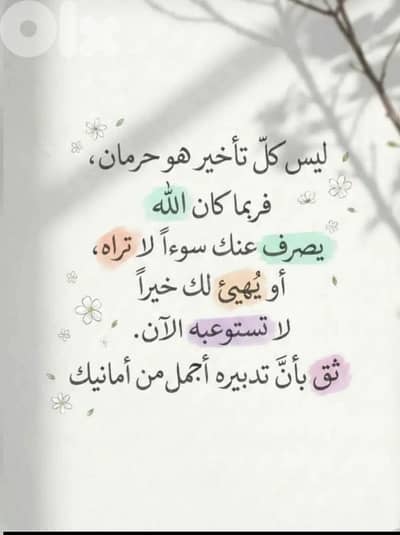 olx
ليس كلّ تأخير هو حرمان،
فربما كان الله
يصرف عنك سوءاً لا تراه،
أو يُهيئ لك خيراً
لا تستوعبه الآن.
ثق بأنَّ تدبيره أجمل من أمانيك